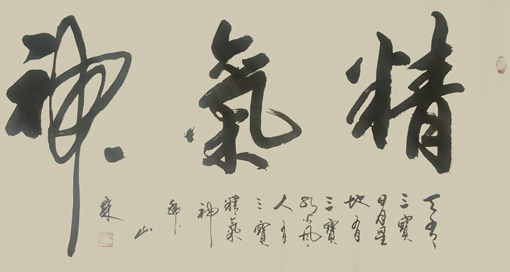 精氣神
天有
三寶
日月星
地有
三寶
水火風
人有
三寶
精氣
神
山